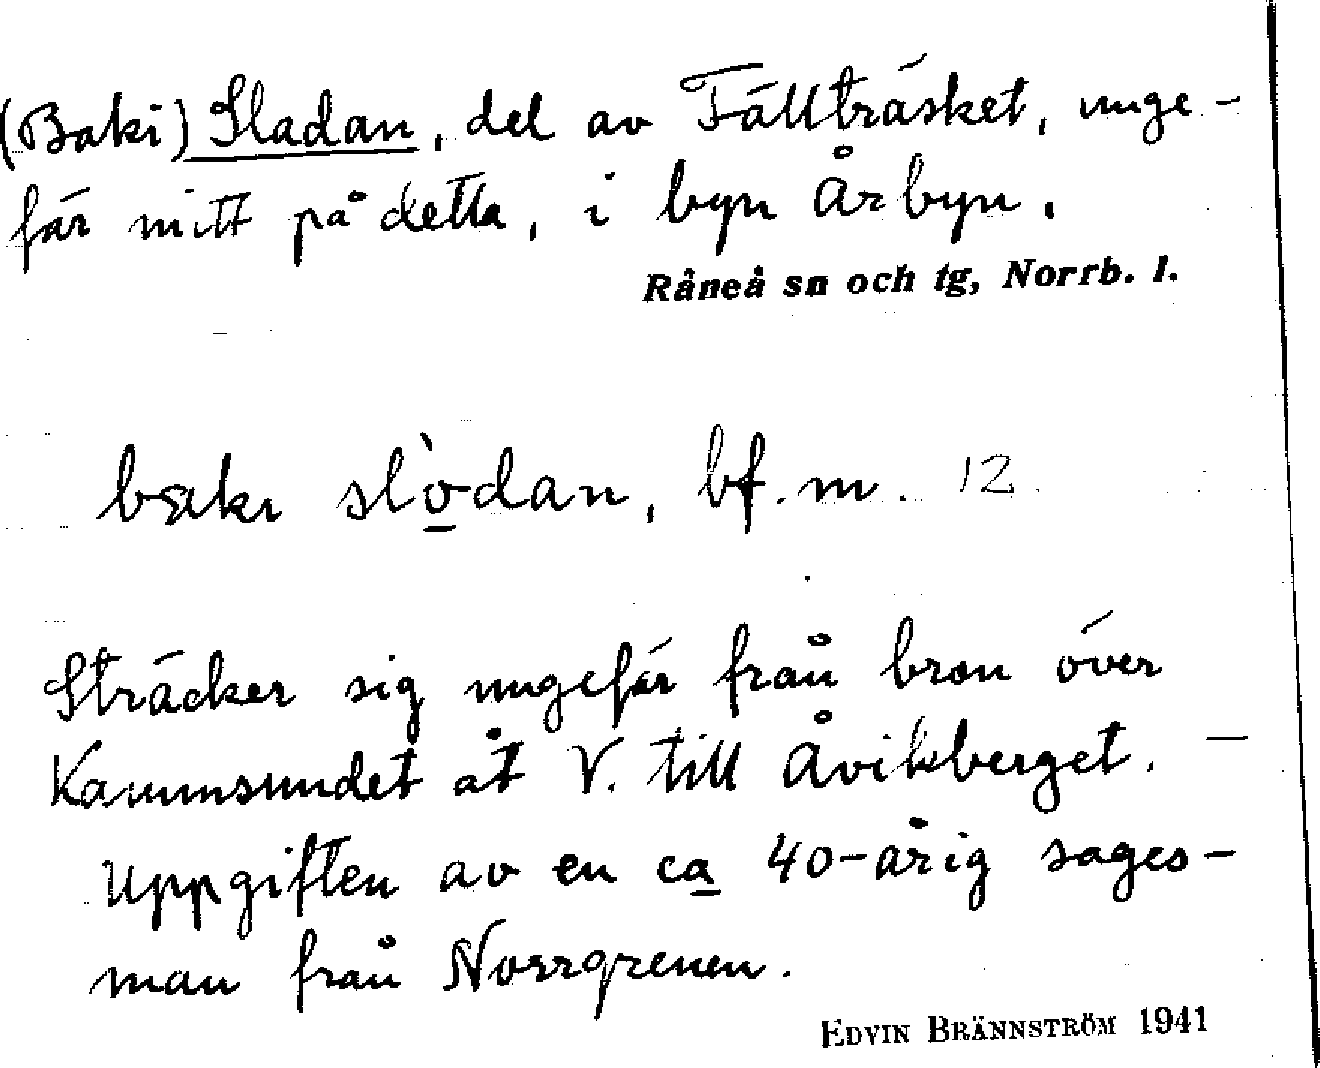 (Baki) Sladan, del av Fällträsket, unge-
fär mitt på detta, i byn Årbyn.
Råneå sn och tg, Norrb. l.
slò̱dan, bf. m. 12
Sträcker sig ungefär från bron över
Kammsundet åt V. till Åvikberget. –
Uppgiften av en ca 40-årig sages-
man från Norrgrenen.
EDVIN BRÄNNSTRÖM 1941